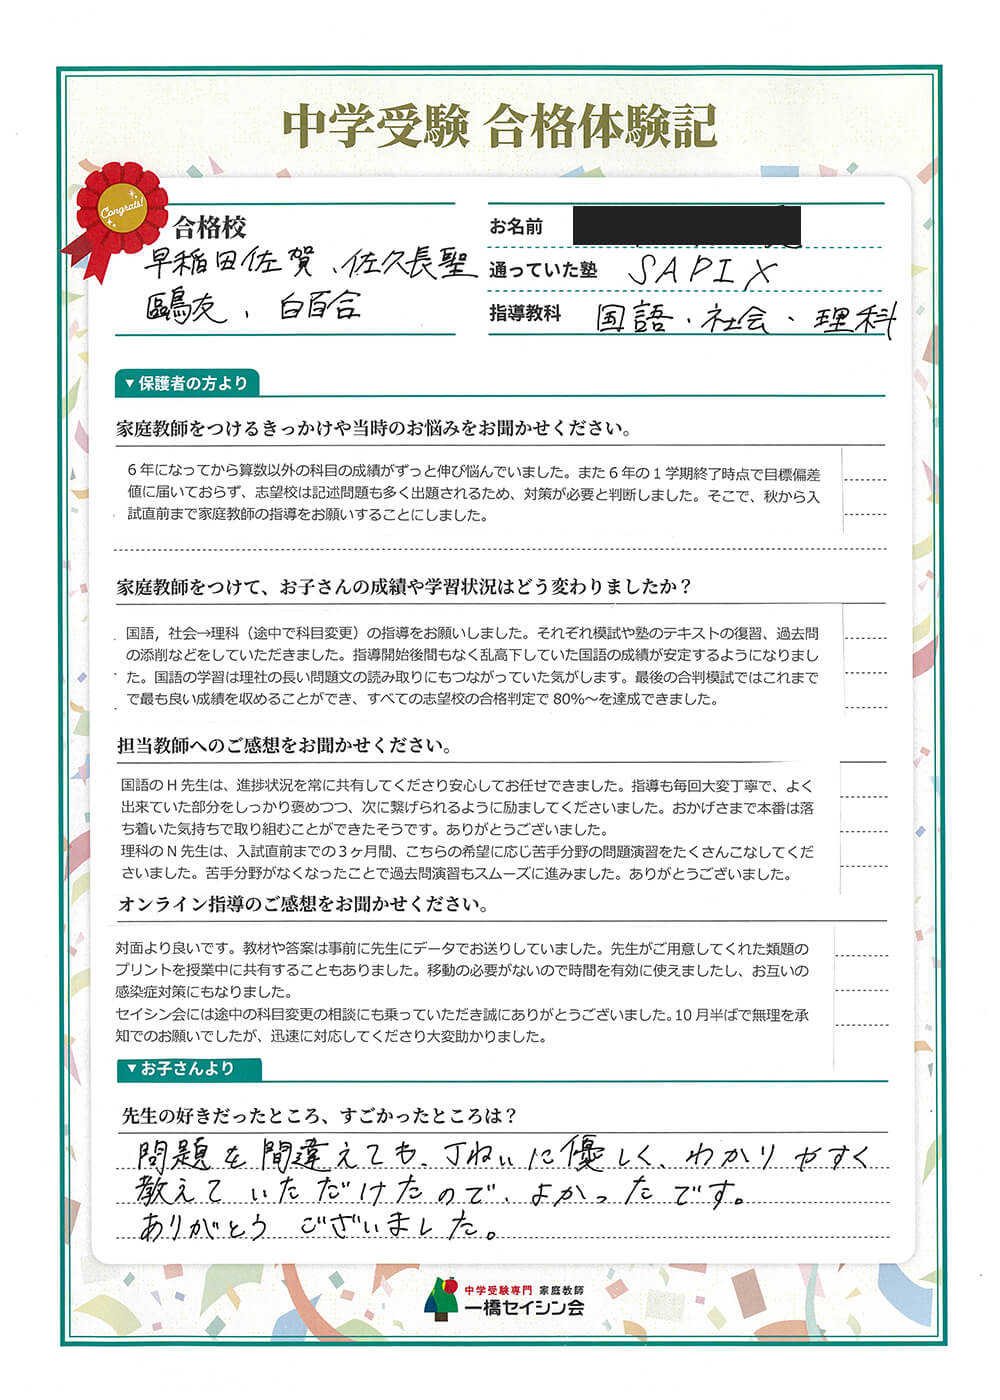 中学受験 合格体験記
Congrats!
合格校
早稲田佐賀、佐久長聖
鷗友、白百合
お名前
通っていた塾 SAPIX
指導教科 国語・社会・理科
▼保護者の方より
家庭教師をつけるきっかけや当時のお悩みをお聞かせください。
6年になってから算数以外の科目の成績がずっと伸び悩んでいました。また6年の1学期終了時点で目標偏差
値に届いておらず、志望校は記述問題も多く出題されるため、対策が必要と判断しました。そこで、秋から入
試直前まで家庭教師の指導をお願いすることにしました。
家庭教師をつけて、お子さんの成績や学習状況はどう変わりましたか？
国語，社会→理科（途中で科目変更）の指導をお願いしました。それぞれ模試や塾のテキストの復習、過去問
の添削などをしていただきました。指導開始後間もなく乱高下していた国語の成績が安定するようになりまし
た。国語の学習は理社の長い問題文の読み取りにもつながっていた気がします。最後の合判模試ではこれまで
で最も良い成績を収めることができ、すべての志望校の合格判定で80%～を達成できました。
担当教師へのご感想をお聞かせください。
国語のH先生は、進捗状況を常に共有してくださり安心してお任せできました。指導も毎回大変丁寧で、よく
出来ていた部分をしっかり褒めつつ、次に繋げられるように励ましてくださいました。おかげさまで本番は落
ち着いた気持ちで取り組むことができたそうです。ありがとうございました。
理科のN先生は、入試直前までの3ヶ月間、こちらの希望に応じ苦手分野の問題演習をたくさんこなしてくだ
さいました。苦手分野がなくなったことで過去問演習もスムーズに進みました。ありがとうございました。
オンライン指導のご感想をお聞かせください。
対面より良いです。教材や答案は事前に先生にデータでお送りしていました。先生がご用意してくれた類題の
プリントを授業中に共有することもありました。移動の必要がないので時間を有効に使えましたし、お互いの
感染症対策にもなりました。
セイシン会には途中の科目変更の相談にも乗っていただき誠にありがとうございました。10月半ばで無理を承
知でのお願いでしたが、迅速に対応してくださり大変助かりました。
▼お子さんより
先生の好きだったところ、すごかったところは？
問題を間違えても、丁ねいに優しく、わかりやすく
教えていただけたので、よかったです。
ありがとうございました。
中学受験専門 家庭教師
一橋セイシン会